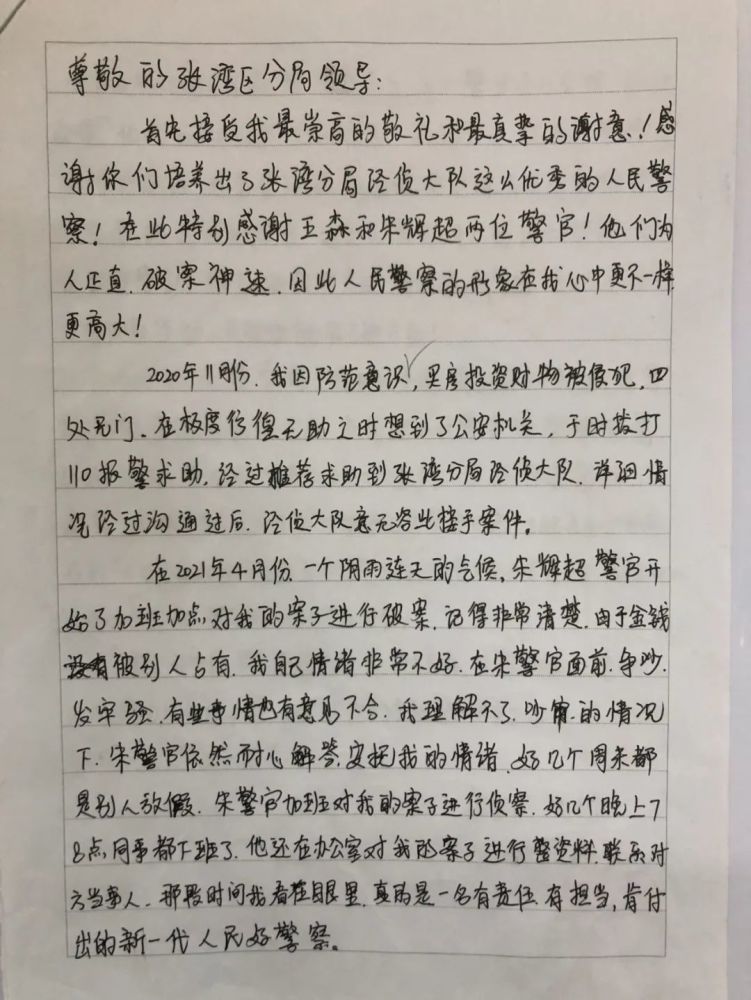 尊敬的张湾区分局领导:
首先接受我最崇高的敬礼和最真挚的谢意!感
谢你们培养出了张湾分局经侦大队这么优秀的人民警
察!在此特别感谢王森和朱辉超两位警官!他们为
人正直、破案神速、因此人民警察的形象在我心中更不一样
更高大!
2020年11月份、我因防范意识,买房投资财物被侵犯,四
处无门、在极度彷徨无助之时想到了公安机关,于时拨打
110报警求助,经过推荐求助到张湾分局经侦大队、详细情
况经过沟通过后、经侦大队意无容此接手案件。
在2021年4月份、一个阴雨连天的气候,朱辉超警官开
始了加班加点对我的案子进行破案、记得非常清楚、由于金钱
被别人占有、我自己情绪非常不好、在朱警官面前、争吵、
发牢骚、有些事情也有意见不合、我理解不了、吵闹的情况
下、朱警官依然耐心解答、安抚我的情绪、好几个周末都
是别人放假、朱警官加班对我的案子进行侦察、好几个晚上7
8点,同事都下班了、他还在办公室对我的案子进行整资料、联系对
方当事人、那段时间我看在眼里、真的是一名有责任、有担当,肯付
出的新一代人民好警察。